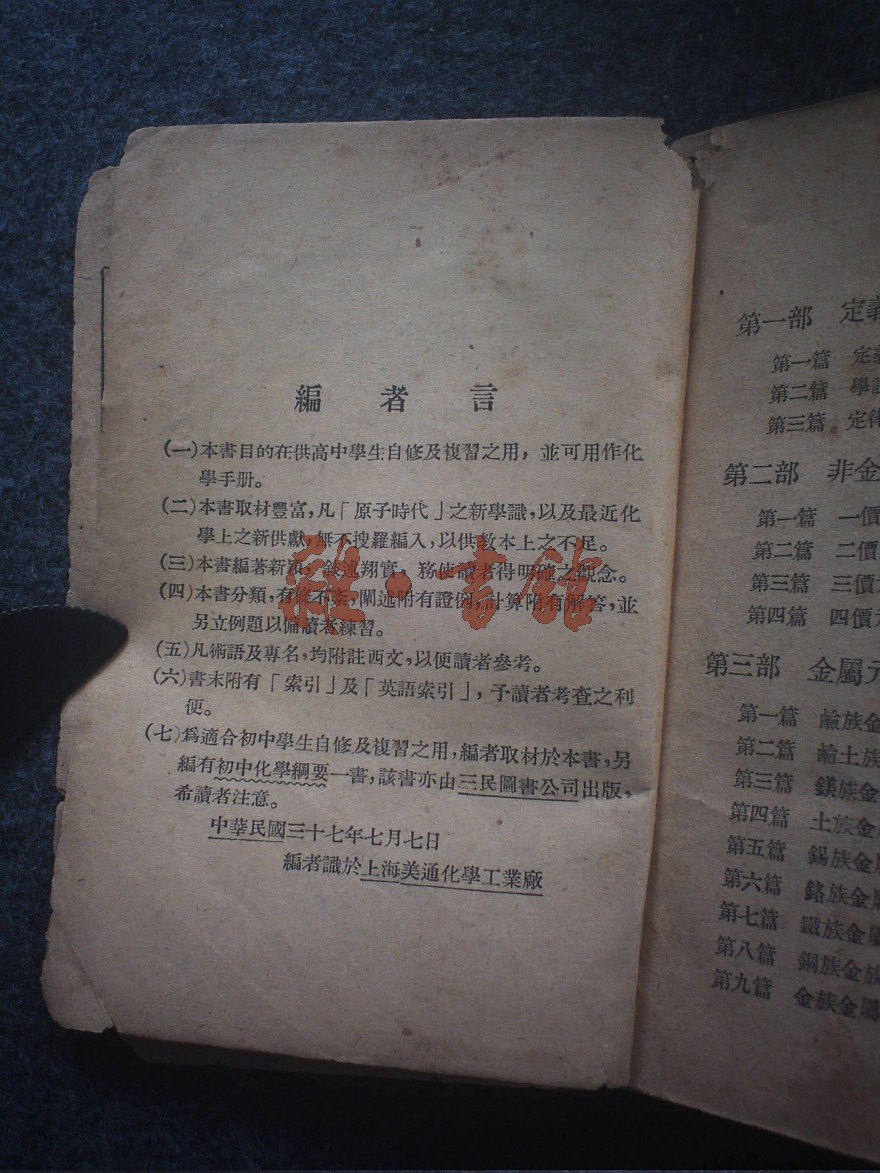 編者言
(一)本書目的在供高中學生自修及複習之用，並可用作化
學手册。
(二)本書取材豐富，凡「原子時代」之新學識，以及最近化
學上之新供獻，無不搜羅編入，以供教本上之不足。
(三)本書編著新穎，敘述翔實，務使讀者得明確之觀念。
(四)本書分類，有條不紊，闡述附有證例，計算附有解答，並
另立例題以備讀者練習。
(五)凡術語及專名，均附註西文，以便讀者參考。
(六)書末附有「索引」及「英語索引」，予讀者考查之利
便。
(七)爲適合初中學生自修及複習之用，編者取材於本書，另
編有初中化學綱要一書，該書亦由三民圖書公司出版，
希讀者注意。
中華民國三十七年七月七日
編者識於上海美通化學工業廠
雜·書館
第一部 定義
第一篇 定義
第二篇 學說
第三篇 定律
第二部 非金
第一篇 一價
第二篇 二價
第三篇 三價元
第四篇 四價元
第三部 金屬元
第一篇 鹼族金
第二篇 鹼土族
第三篇 鎂族金
第四篇 土族金
第五篇 錫族金屬
第六篇 鉻族金屬
第七篇 鐵族金屬
第八篇 銅族金族
第九篇 金族金屬